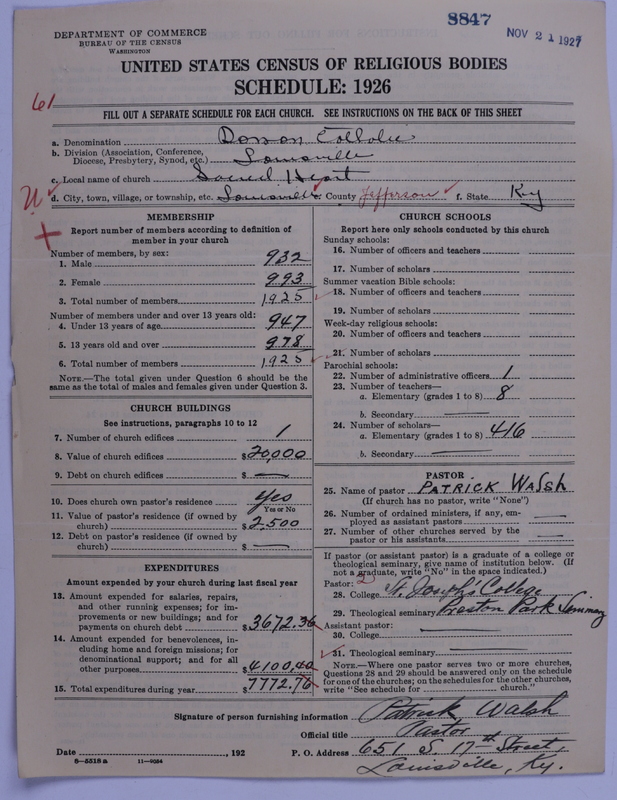 8847
NOV 21 1927
DEPARTMENT OF COMMERCE
BUREAU OF THE CENSUS
WASHINGTON
UNITED STATES CENSUS OF RELIGIOUS BODIES
SCHEDULE: 1926
61
FILL OUT A SEPARATE SCHEDULE FOR EACH CHURCH. SEE INSTRUCTIONS ON THE BACK OF THIS SHEET
a. Denomination
b. Division (Association, Conference, Diocese, Presbytery, Synod, etc.) Louisville
c. Local name of church Sacred Heart
d. City, town, village, or township, etc. Louisville e. County Jefferson f. State Ky
MEMBERSHIP
Report number of members according to definition of
member in your church
Number of members, by sex:
1. Male 932
2. Female 993
3. Total number of members 1925
Number of members under and over 13 years old:
4. Under 13 years of age 947
5. 13 years old and over 978
6. Total number of members 1925
NOTE.—The total given under Question 6 should be the
same as the total of males and females given under Question 3.
CHURCH BUILDINGS
See instructions, paragraphs 10 to 12
7. Number of church edifices 1
8. Value of church edifices $ 20,000
9. Debt on church edifices $ —
10. Does church own pastor's residence Yes
Yes or No
11. Value of pastor's residence (if owned by
church) $ 2,500
12. Debt on pastor's residence (if owned by
church) $ —
EXPENDITURES
Amount expended by your church during last fiscal year
13. Amount expended for salaries, repairs,
and other running expenses; for im-
provements or new buildings; and for
payments on church debt $ 3672.36
14. Amount expended for benevolences, in-
cluding home and foreign missions; for
denominational support; and for all
other purposes $ 4100.40
15. Total expenditures during year $ 7772.76
CHURCH SCHOOLS
Report here only schools conducted by this church
Sunday schools:
16. Number of officers and teachers
17. Number of scholars
Summer vacation Bible schools:
18. Number of officers and teachers
19. Number of scholars
Week-day religious schools:
20. Number of officers and teachers
21. Number of scholars
Parochial schools:
22. Number of administrative officers 1
23. Number of teachers—
a. Elementary (grades 1 to 8) 8
b. Secondary —
24. Number of scholars—
a. Elementary (grades 1 to 8) 416
b. Secondary —
PASTOR
25. Name of pastor PATRICK WALSH
(If church has no pastor, write "None")
26. Number of ordained ministers, if any, em-
ployed as assistant pastors —
27. Number of other churches served by the
pastor or his assistants —
If pastor (or assistant pastor) is a graduate of a college or
theological seminary, give name of institution below. (If
not a graduate, write "No" in the space indicated.)
Pastor: 2
28. College St. Joseph's College
29. Theological seminary Preston Park Seminary
Assistant pastor:
30. College —
31. Theological seminary —
NOTE.—Where one pastor serves two or more churches,
Questions 28 and 29 should be answered only on the schedule
for one of the churches; on the schedules for the other churches,
write "See schedule for church."
Signature of person furnishing information Patrick Walsh
Official title Pastor
Date , 192 P. O. Address 651 S. 17th Street,
8—5518 a 11—9034 Louisville, Ky.